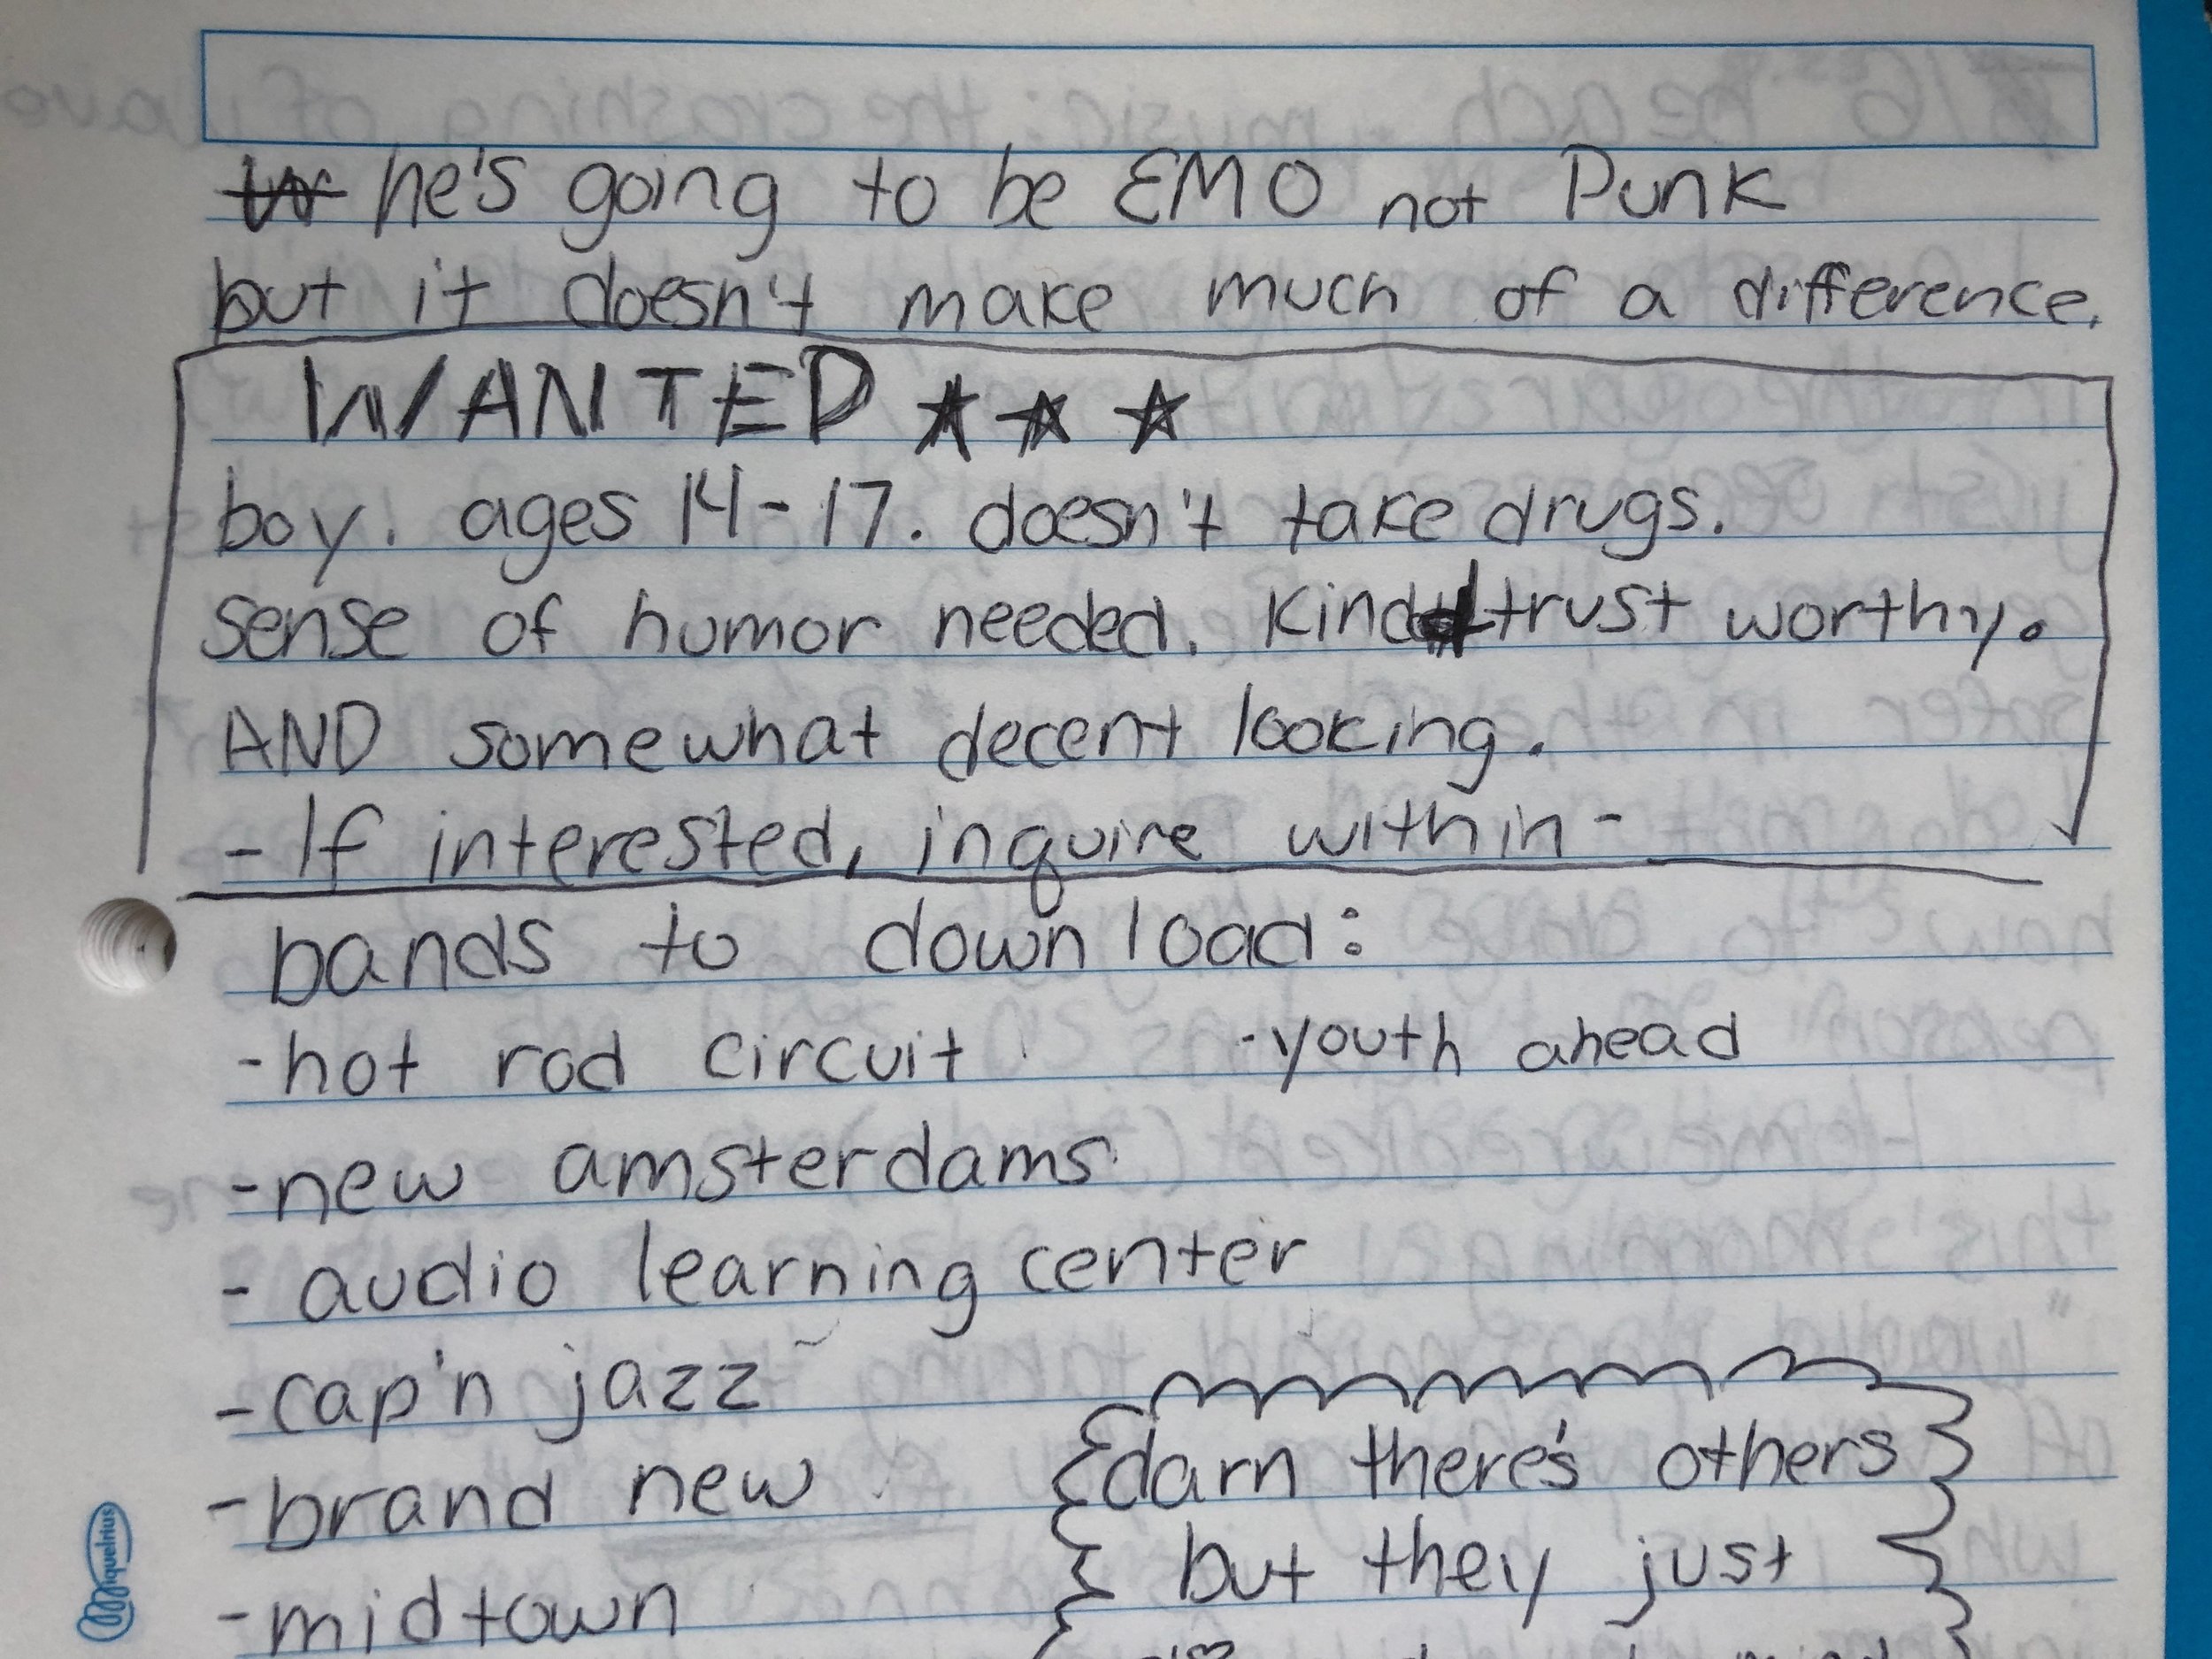 he's going to be EMO not Punk
but it doesn't make much of a difference.
WANTED ★ ★ ★
boy. ages 14-17. doesn't take drugs.
sense of humor needed. Kind trust worthy.
AND somewhat decent looking.
- If interested, inquire within -
bands to download:
-hot rod circuit
-youth ahead
-new amsterdams
- audio learning center
-cap'n jazz
-brand new
-midtown
darn there's others
but they just
Miquelrius